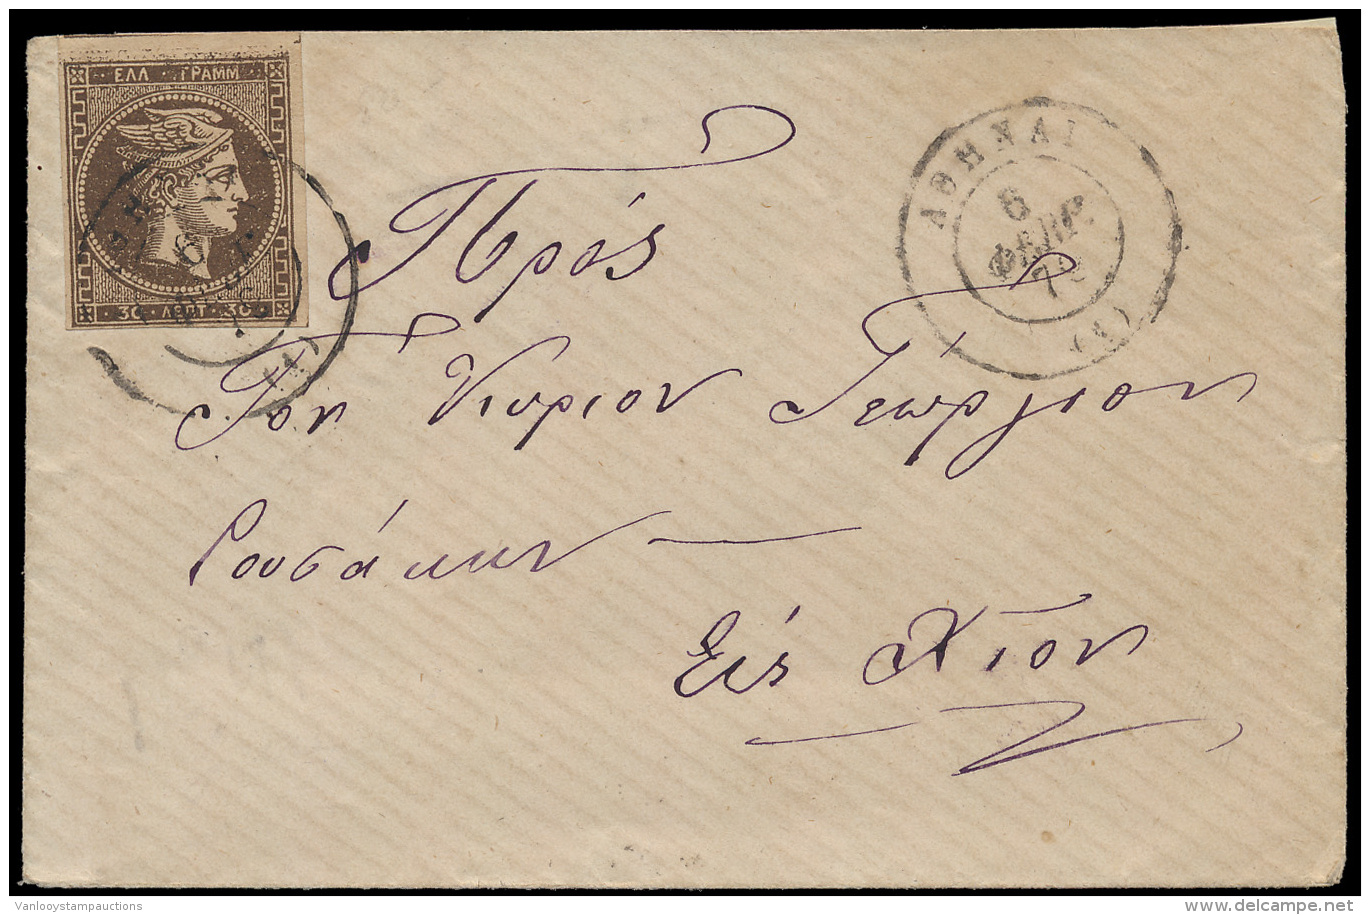 ΕΛΛ · ΓΡΑΜΜ
30 · ΛΕΠΤ · 30
6
(1)
ΑΘΗΝΑΙ
6
ΦΕΒΡ.
(1)
Πρὸς
Τον Κυριον Γεώργιον
Ρουσάκην —
Εἰς Χῖον
Vanlooystampauctions
www.delcampe.net